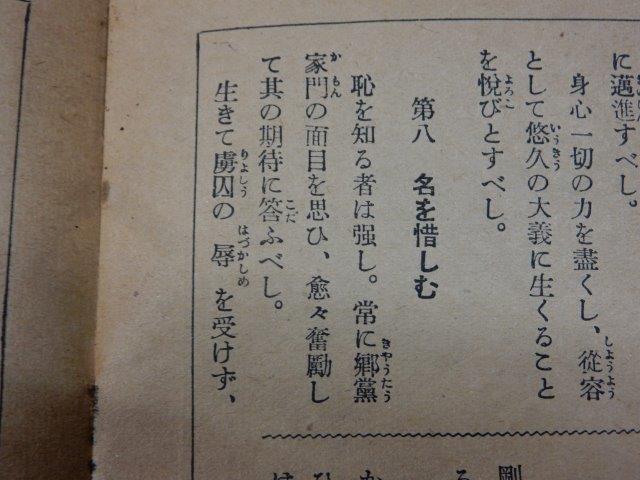 に邁進すべし。
身心一切の力を盡くし、從容
として悠久の大義に生くること
を悅びとすべし。
第八　名を惜しむ
恥を知る者は强し。常に鄕黨
家門の面目を思ひ、愈々奮勵し
て其の期待に答ふべし。
生きて虜囚の辱を受けず、